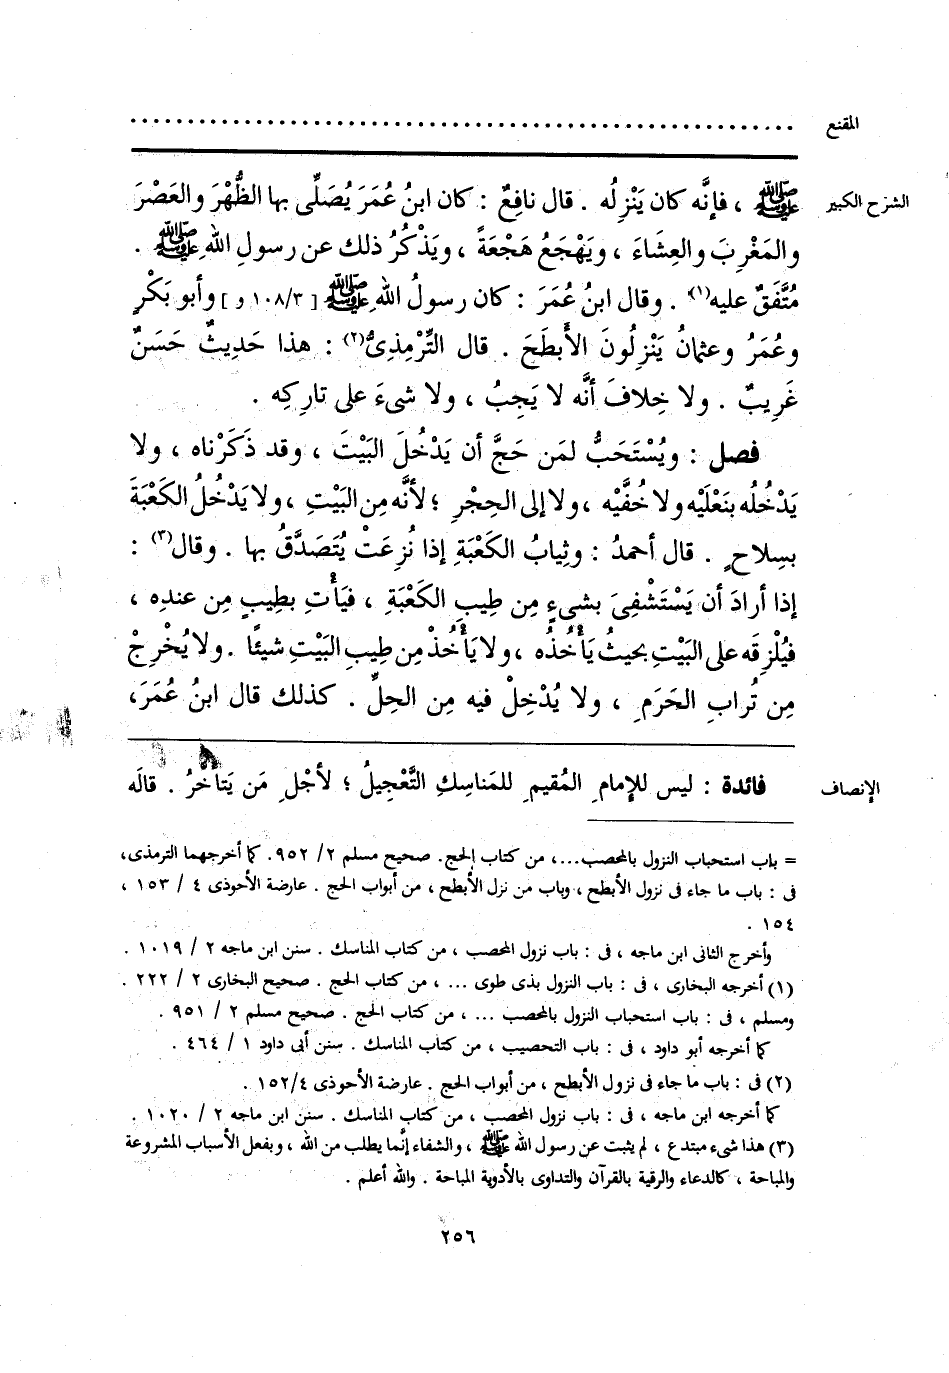 المقنع ................................................................
الشرح الكبير ﷺ ، فإنَّه كان يَنْزِلُه . قال نافِعٌ : كان ابنُ عُمَرَ يُصَلِّى بها الظُّهْرَ والعَصْرَ
والمَغْرِبَ والعِشاءَ ، ويَهْجَعُ هَجْعَةً ، ويَذْكُرُ ذلك عن رسولِ اللهِ ﷺ .
مُتَّفَقٌ عليه(١) . وقال ابنُ عُمَرَ : كان رسولُ اللهِ ﷺ [ ١٠٨/٣ و ] وأبو بَكْرٍ
وعُمَرُ وعثمانُ يَنْزِلُونَ الأَبطَحَ . قال التِّرْمِذِىُّ(٢) : هذا حَدِيثٌ حَسَنٌ
غَرِيبٌ . ولا خِلافَ أنَّه لا يَجِبُ ، ولا شىءَ على تارِكِه .
فصل : ويُسْتَحَبُّ لمَن حَجَّ أن يَدْخُلَ البَيْتَ ، وقد ذَكَرْناه ، ولا
يَدْخُلُه بنَعْلَيْه ولا خُفَّيْه ، ولا إلى الحِجْرِ ؛ لأنَّه مِن البَيْتِ ، ولا يَدْخُلُ الكَعْبَةَ
بسِلاحٍ . قال أحمدُ : وثِيابُ الكَعْبَةِ إذا نُزِعَتْ يُتَصَدَّقُ بها . وقال(٣) :
إذا أرادَ أن يَسْتَشْفِىَ بشىءٍ مِن طِيبِ الكَعْبَةِ ، فيَأْتِ بطِيبٍ مِن عندِه ،
فيُلْزِقه على البَيْتِ بحيثُ يَأْخُذُه ، ولا يَأْخُذْ مِن طِيبِ البَيْتِ شيئًا . ولا يُخْرِجْ
مِن تُرابِ الحَرَمِ ، ولا يُدْخِلْ فيه مِن الحِلِّ . كذلك قال ابنُ عُمَرَ،
الإنصاف فائدة : ليس للإمامِ المُقيمِ للمَناسِكِ التَّعْجِيلُ ؛ لأجْلِ مَن يَتأخَّرُ . قالَه
= باب استحباب النزول بالمحصب...، من كتاب الحج. صحيح مسلم ٢/ ٩٥٢. كما أخرجهما الترمذى،
فى : باب ما جاء فى نزول الأبطح ، وباب من نزل الأبطح ، من أبواب الحج . عارضة الأحوذى ٤ / ١٥٣ ،
١٥٤ .
وأخرج الثانى ابن ماجه ، فى : باب نزول المحصب ، من كتاب المناسك . سنن ابن ماجه ٢ / ١٠١٩ .
(١) أخرجه البخارى ، فى : باب النزول بذى طوى ... ، من كتاب الحج . صحيح البخارى ٢ / ٢٢٢ .
ومسلم ، فى : باب استحباب النزول بالمحصب ... ، من كتاب الحج . صحيح مسلم ٢ / ٩٥١ .
كما أخرجه أبو داود ، فى : باب التحصيب ، من كتاب المناسك . سنن أبى داود ١ / ٤٦٤ .
(٢) فى : باب ما جاء فى نزول الأبطح ، من أبواب الحج . عارضة الأحوذى ١٥٢/٤ .
كما أخرجه ابن ماجه ، فى : باب نزول المحصب ، من كتاب المناسك . سنن ابن ماجه ٢ / ١٠٢٠ .
(٣) هذا شىء مبتدع ، لم يثبت عن رسول الله ﷺ ، والشفاء إنَّما يطلب من الله ، وبفعل الأسباب المشروعة
والمباحة ، كالدعاء والرقية بالقرآن والتداوى بالأدوية المباحة . والله أعلم .
٢٥٦